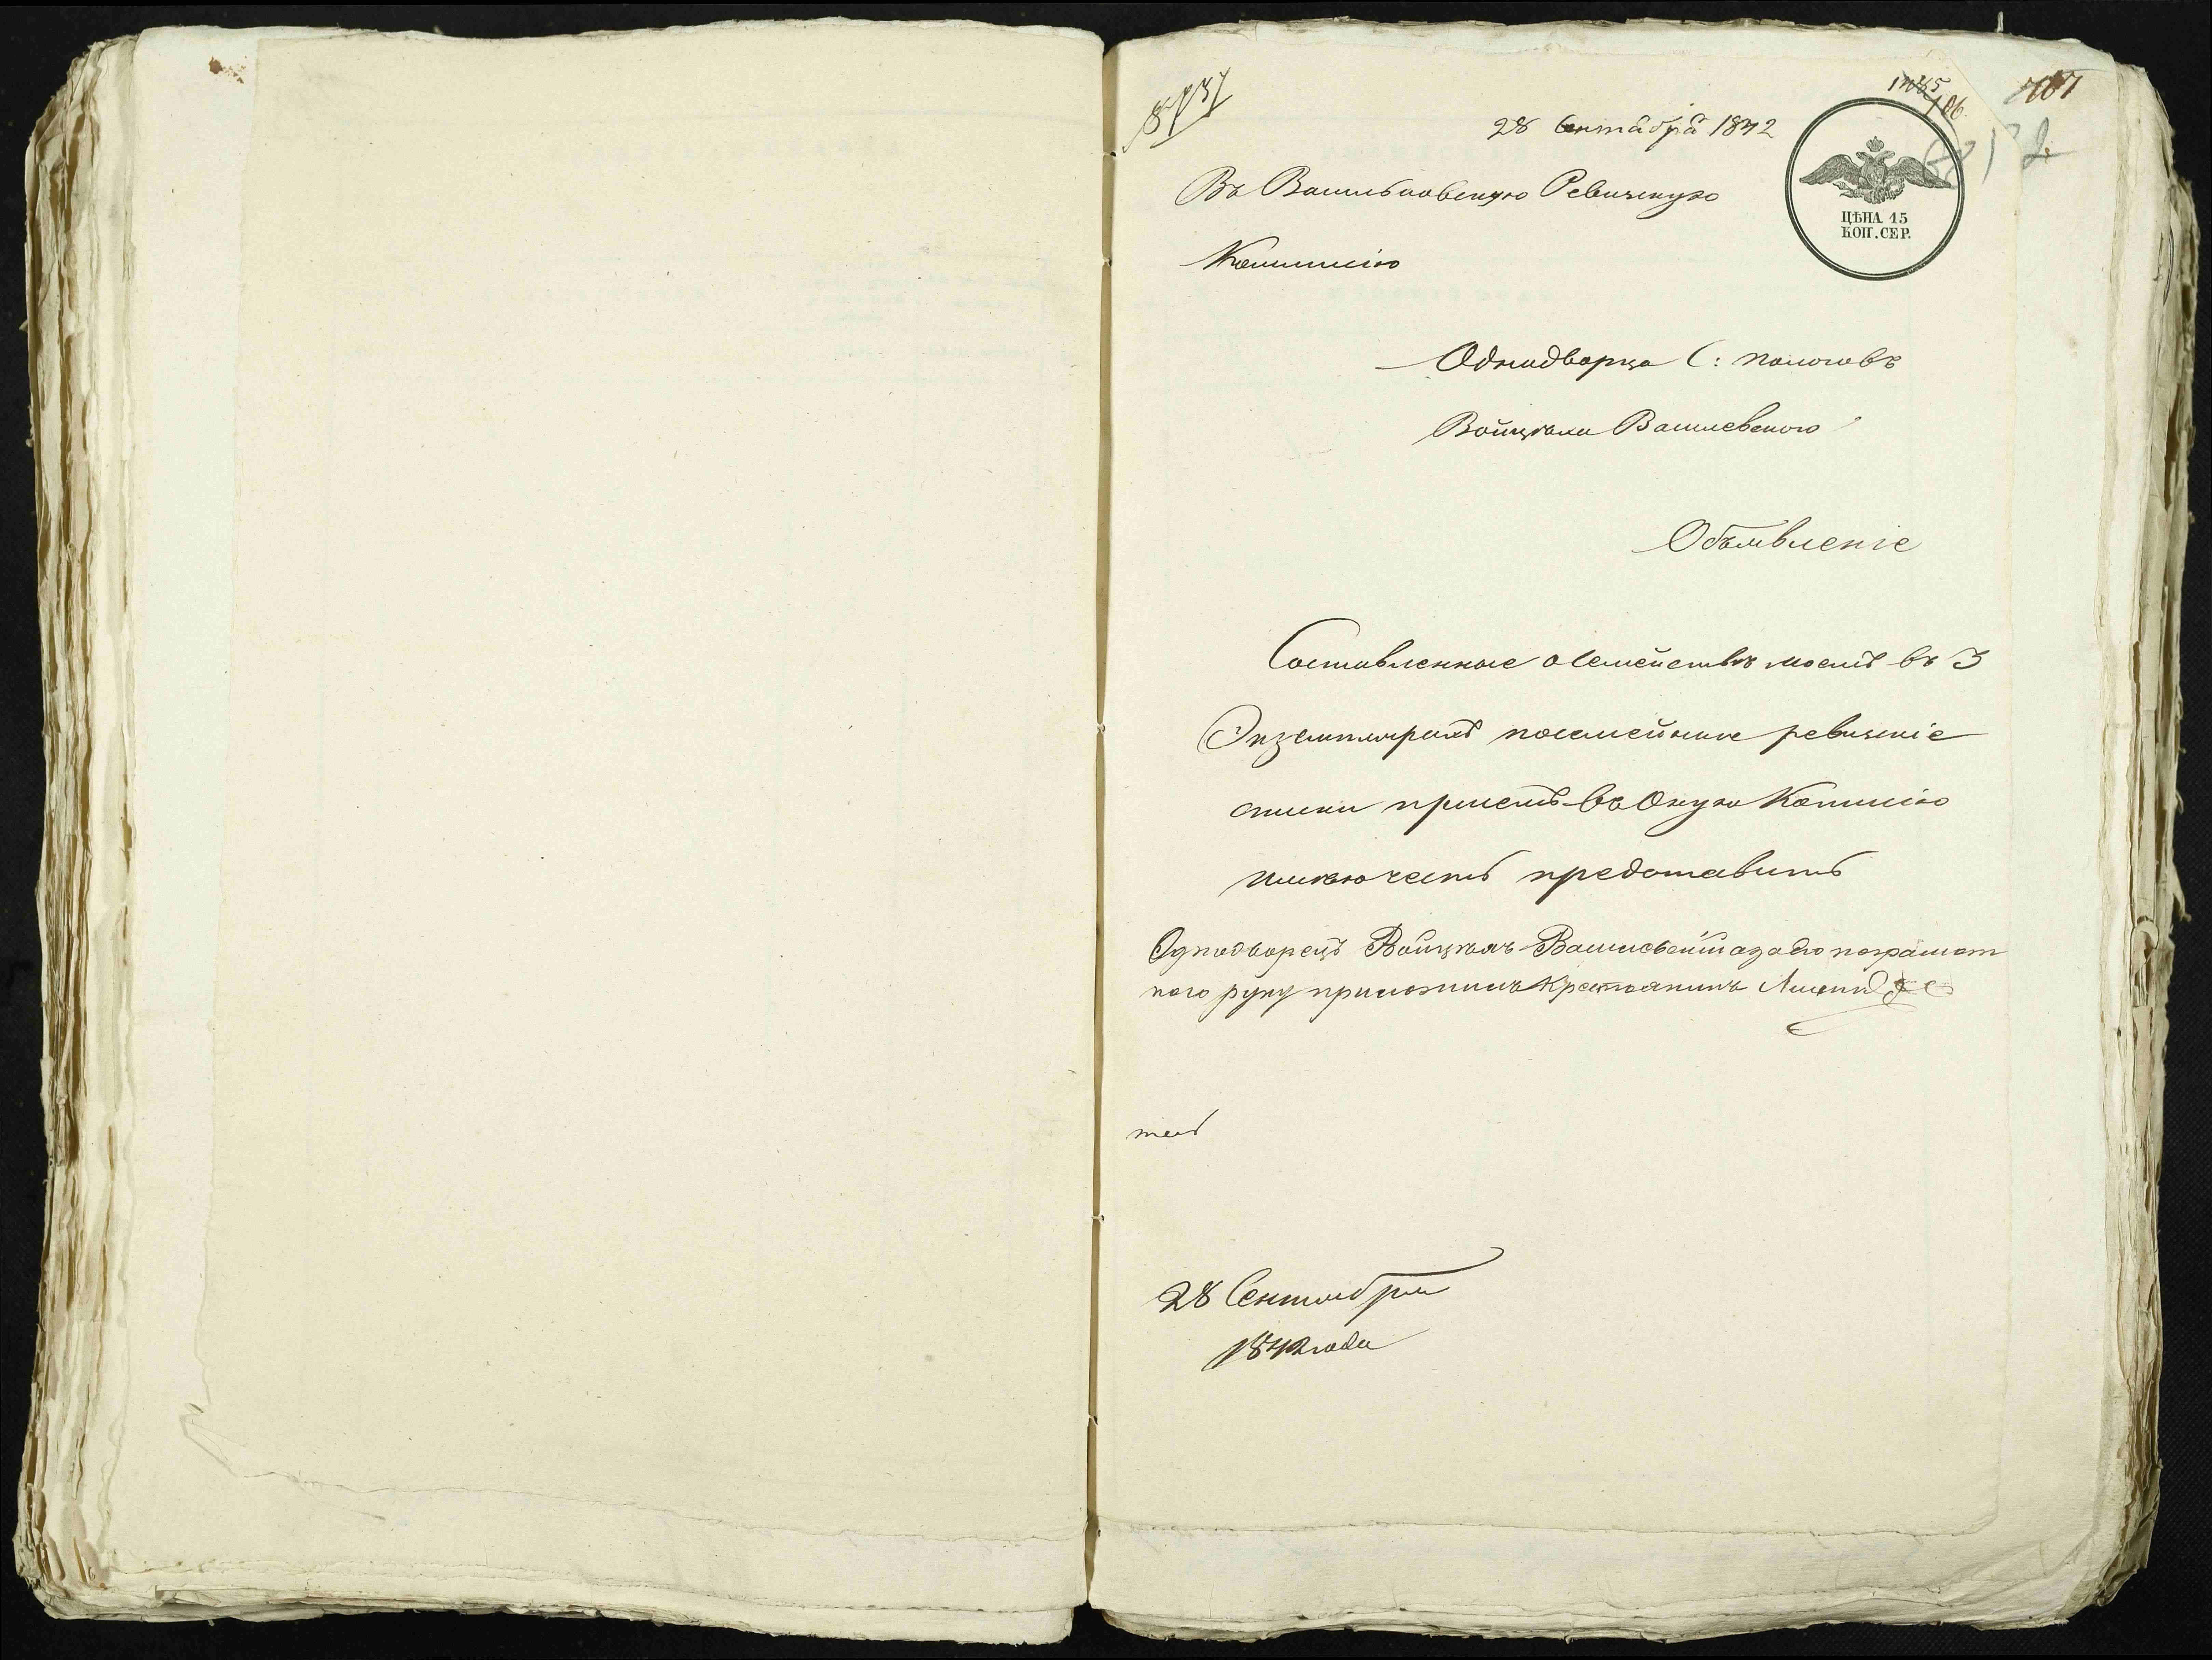 28 Сентября 1842
ЦѢНА 15
КОП. СЕР.
Въ Васильковскую Ревизкую
Коммисію
Однодворца С:
Войцѣха Вашевского
Объявленіе
Составленные о Семействѣ моемъ въ 3
Экземплярахъ посемейные ревизкіе
скаски при семъ въ Оную Комисію
имѣю честь предоставить
Однодворецъ Войцѣхъ а за его неграмот
ного руку приложилъ Крестьянинъ
28 Сентября
1842 года